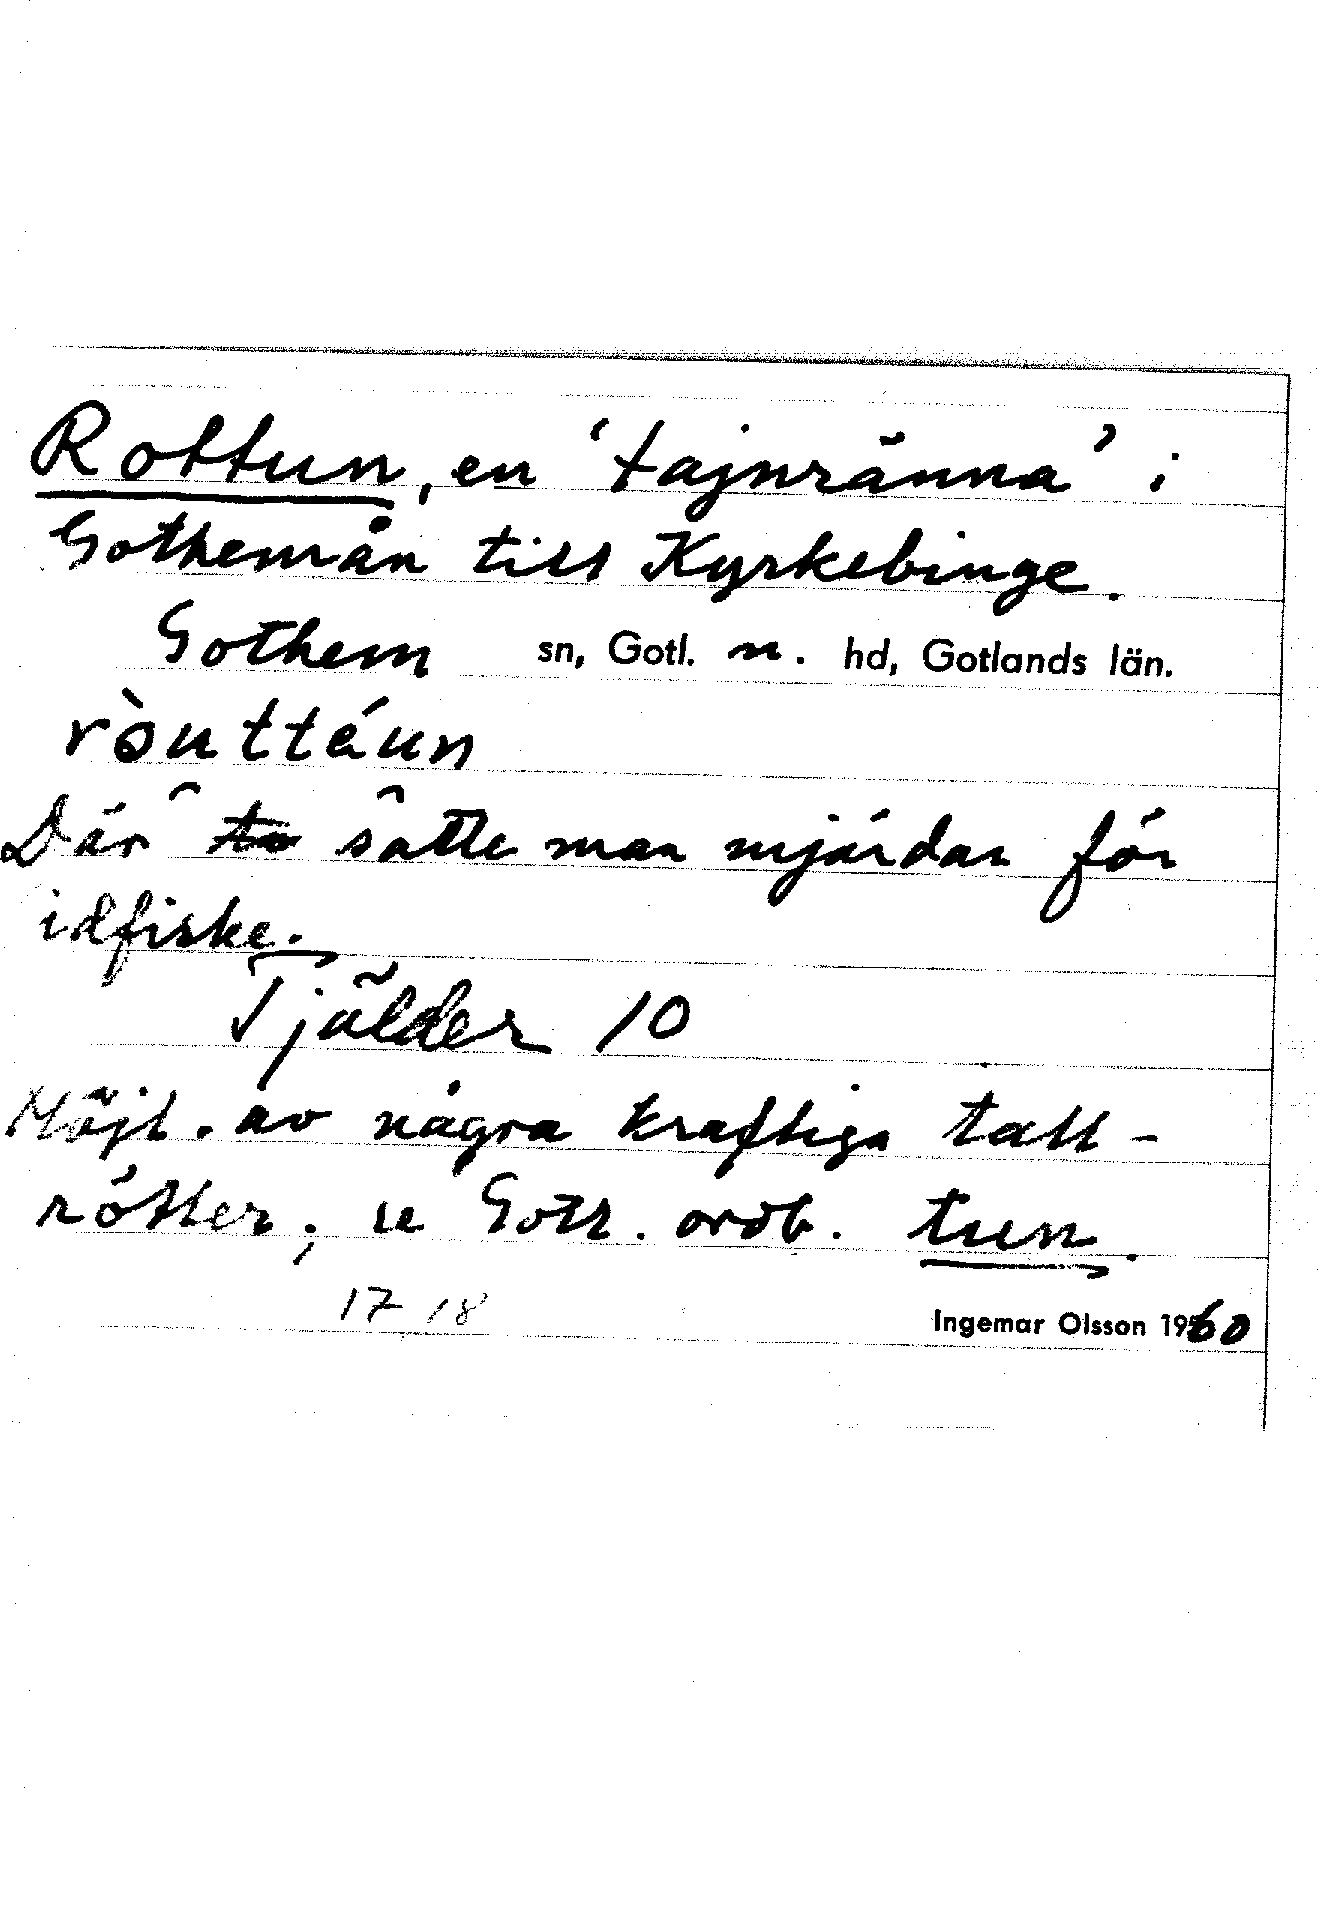 Rottun, en 'tajnränna' i
Gothemån till Kyrkebinge.
Gothem sn, Gotl. n. hd, Gotlands län.
ròuttáun
Där satte man mjärdar för
idfiske.
Tjälder 10
Möjl. av några kraftiga tall-
rötter; se Gotl. ordb. tun.
17 18 Ingemar Olsson 1960